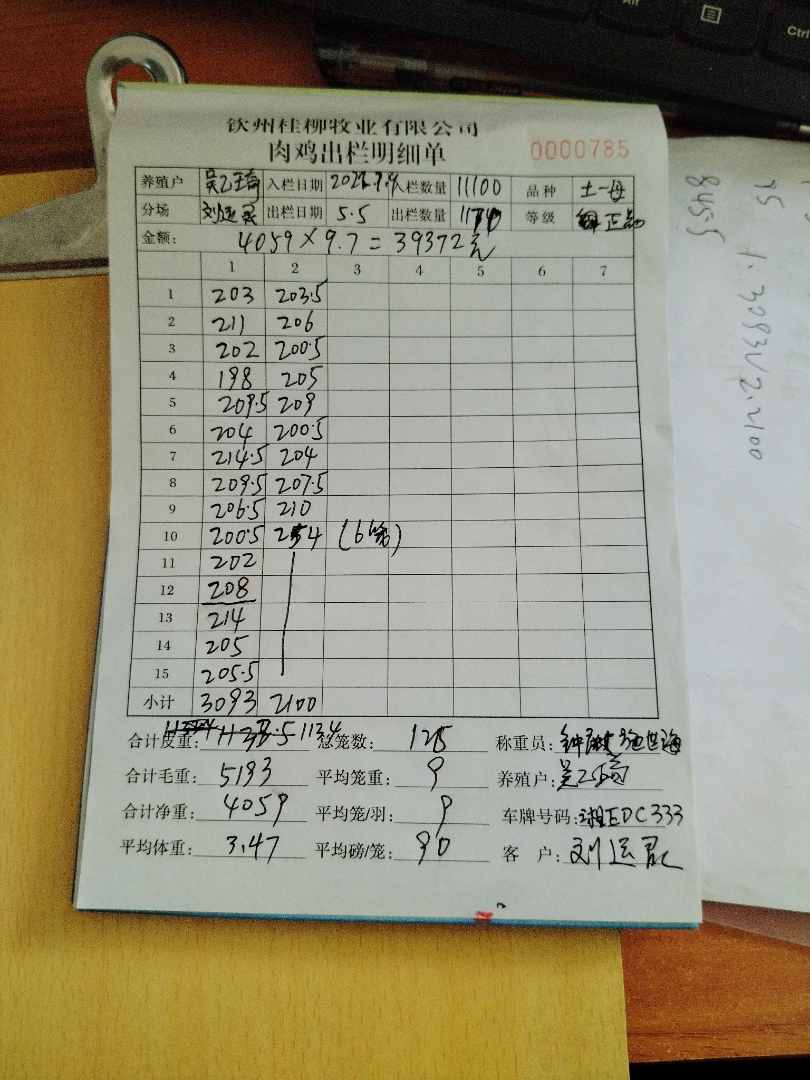 钦州桂柳牧业有限公司
肉鸡出栏明细单 0000785
养殖户 入栏日期 入栏数量 11100 品种 土一母
分场 出栏日期 5.5 出栏数量 等级 正品
金额: 4059×9.7=39372元
1 2 3 4 5 6 7
1 203 203.5
2 211 206
3 202 200.5
4 198 205
5 209.5 209
6 204 200.5
7 214.5 204
8 209.5 207.5
9 206.5 210
10 200.5 254 (6笼)
11 202
12 208
13 214
14 205
15 205.5
小计 3093 2100
合计皮重: 1134 总笼数: 称重员:
合计毛重: 5193 平均笼重: 9 养殖户:
合计净重: 4059 平均笼/羽: 9 车牌号码: 湘EDC333
平均体重: 3.47 平均磅/笼: 90 客 户: 刘运
8455
75
1.3093 2.2100
Alt
Ctrl